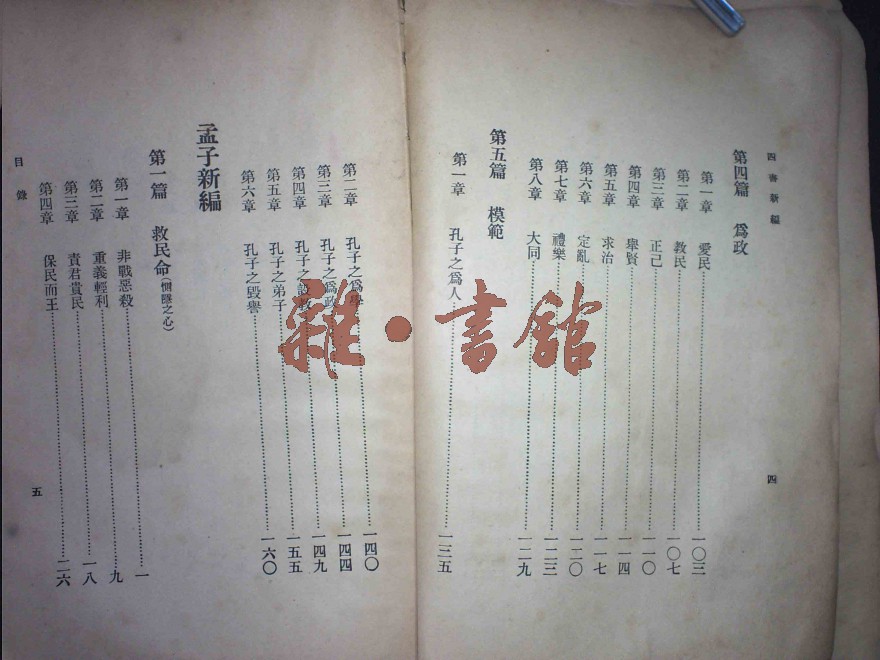 四書新編
第四篇 爲政
第一章 愛民 一〇三
第二章 教民 一〇七
第三章 正己 一一〇
第四章 舉賢 一一四
第五章 求治 一一七
第六章 定亂 一二〇
第七章 禮樂 一二三
第八章 大同 一二九
第五篇 模範
第一章 孔子之爲人 一三五
四
第二章 孔子之爲學 一四〇
第三章 孔子之爲政 一四四
第四章 孔子之設教 一四九
第五章 孔子之弟子 一五五
第六章 孔子之毀譽 一六〇
孟子新編
第一篇 救民命(惻隱之心)
第一章 非戰惡殺 一
第二章 重義輕利 九
第三章 責君貴民 一八
第四章 保民而王 二六
目錄
五
雜·書館